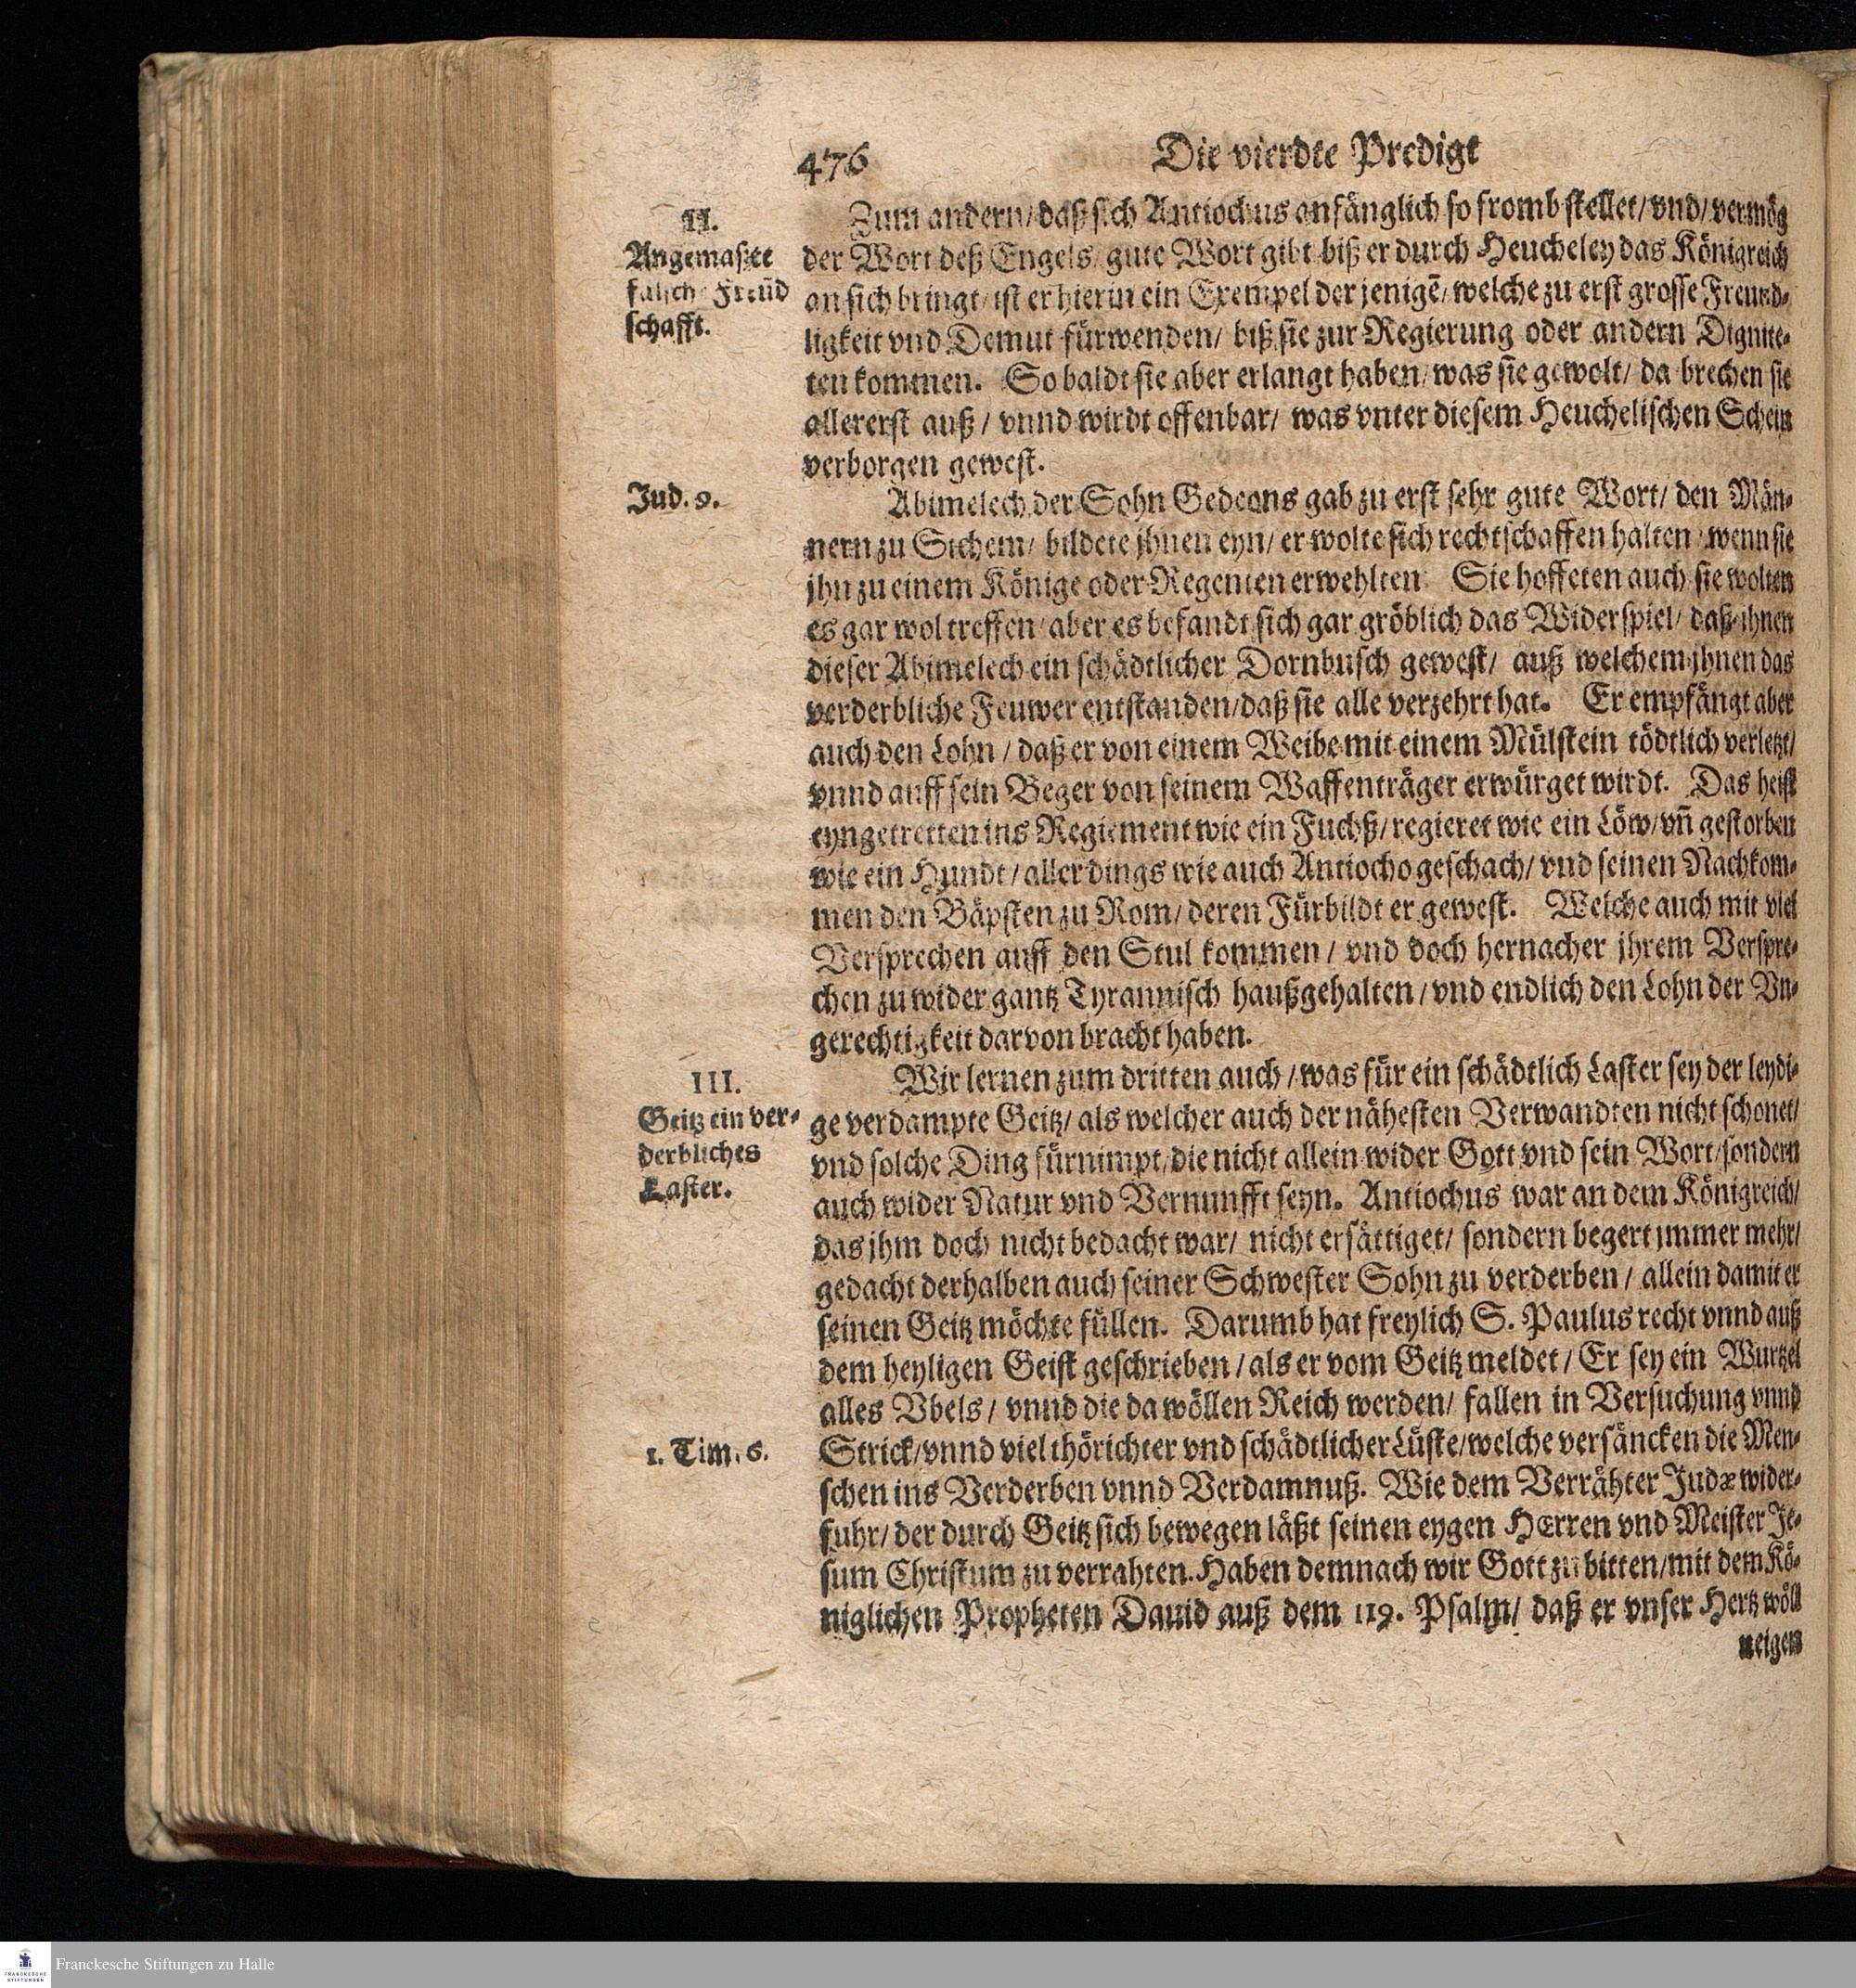 476
Die vierdte Predigt
II.
Angemaßte
falsch Freūd
schafft.
Zum andern/ daß sich Antiochus anfänglich so fromb stellet/ vnd/ vermög
der Wort deß Engels/ gute Wort gibt biß er durch Heucheley das Königreich
an sich bringt/ ist er hierin ein Exempel der jenigē/ welche zu erst grosse Freund-
ligkeit vnd Demut fürwenden/ biß sie zur Regierung oder andern Dignite-
ten kommen. So baldt sie aber erlangt haben/ was sie gewolt/ da brechen sie
allererst auß/ vnnd wirdt offenbar/ was vnter diesem Heuchelischen Schein
verborgen gewest.
Jud. 9.
Abimelech der Sohn Gedeons gab zu erst sehr gute Wort/ den Män-
nern zu Sichem/ bildete jhnen eyn/ er wolte sich rechtschaffen halten/ wenn sie
jhn zu einem Könige oder Regenten erwehlten: Sie hoffeten auch sie wolten
es gar wol treffen/ aber es befandt sich gar gröblich das Widerspiel/ daß jhnen
dieser Abimelech ein schädtlicher Dornbusch gewest/ auß welchem jhnen das
verderbliche Feuwer entstanden/ daß sie alle verzehrt hat. Er empfängt aber
auch den Lohn/ daß er von einem Weibe mit einem Mülstein tödtlich verletzt/
vnnd auff sein Beger von seinem Waffenträger erwürget wirdt. Das heist
eyngetretten ins Regiement wie ein Fuchß/ regieret wie ein Löw/ vñ gestorben
wie ein Hundt/ aller dings wie auch Antiocho geschach/ vnd seinen Nachkom-
men den Bäpsten zu Rom/ deren Fürbildt er gewest. Welche auch mit viel
Versprechen auff den Stul kommen/ vnd doch hernacher jhrem Verspre-
chen zu wider gantz Tyrannisch haußgehalten/ vnd endlich den Lohn der Vn-
gerechtigkeit darvon bracht haben.
III.
Geitz ein ver-
derbliches
Laster.
Wir lernen zum dritten auch/ was für ein schädtlich Laster sey der leydi-
ge verdampte Geitz/ als welcher auch der nähesten Verwandten nicht schonet/
vnd solche Ding fürnimpt/ die nicht allein wider Gott vnd sein Wort/ sondern
auch wider Natur vnd Vernunfft seyn. Antiochus war an dem Königreich/
das jhm doch nicht bedacht war/ nicht ersättiget/ sondern begert jmmer mehr/
gedacht derhalben auch seiner Schwester Sohn zu verderben/ allein damit er
seinen Geitz möchte füllen. Darumb hat freylich S. Paulus recht vnnd auß
dem heyligen Geist geschrieben/ als er vom Geitz meldet/ Er sey ein Wurtzel
alles Vbels/ vnnd die da wöllen Reich werden/ fallen in Versuchung vnnd
1. Tim. 6.
Strick/ vnnd viel thörichter vnd schädtlicher Lüste/ welche versäncken die Men-
schen ins Verderben vnnd Verdamnuß. Wie dem Verrähter Judæ wider-
fuhr/ der durch Geitz sich bewegen läßt seinen eygen HErren vnd Meister Je-
sum Christum zu verrahten. Haben demnach wir Gott zu bitten/ mit dem Kö-
niglichen Propheten Dauid auß dem 119. Psalm/ daß er vnser Hertz wöll
neigen
FRANCKESCHE
STIFTUNGEN
Franckesche Stiftungen zu Halle